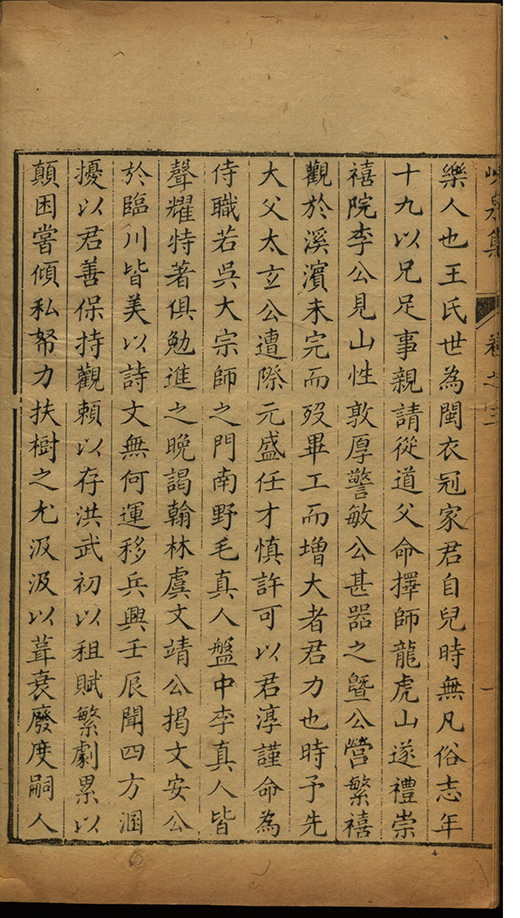 峴泉集
卷之三
一
樂人也王氏世為閩衣冠家君自兒時無凡俗志年
十九以兄足事親請從道父命擇師龍虎山遂禮崇
禧院李公見山性敦厚警敏公甚器之曁公營繁禧
觀於溪濵未完而歿畢工而增大者君力也時予先
大父太玄公遭際元盛任才慎許可以君淳謹命為
侍職若吳大宗師之門南野毛真人盤中李真人皆
聲耀特著俱勉進之晚謁翰林虞文靖公揭文安公
於臨川皆美以詩文無何運移兵興壬辰閒四方涸
擾以君善保持觀頼以存洪武初以租賦繁劇累以
顛困嘗傾私帑力扶樹之尤汲汲以葺衰廢度嗣人